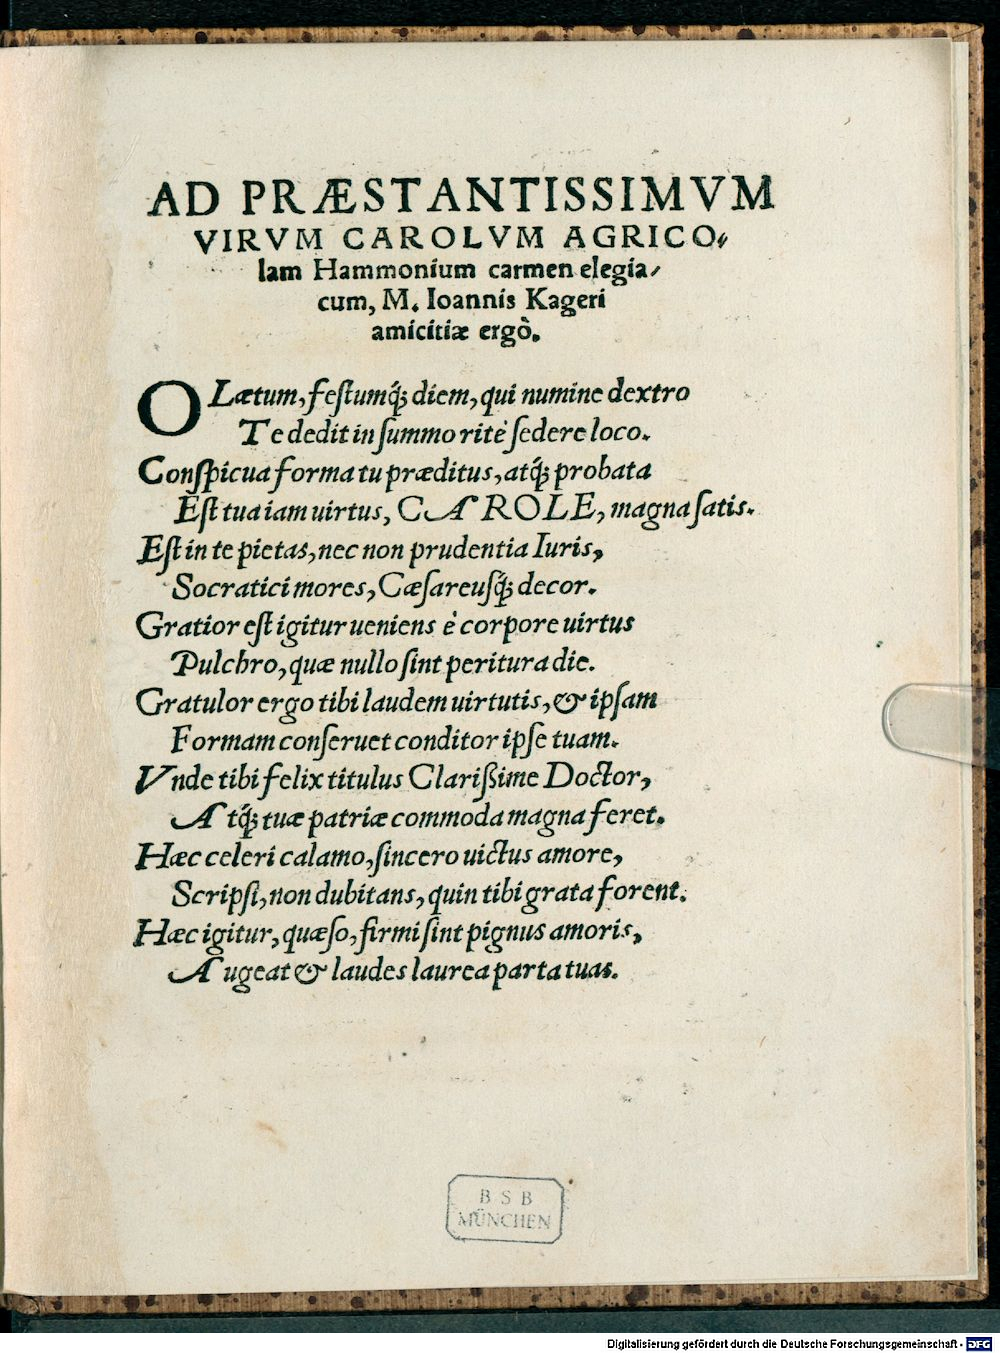 AD PRÆSTANTISSIMVM
VIRVM CAROLVM AGRICO⸗
lam Hammonium carmen elegia⸗
cum, M. Ioannis Kageri
amicitiæ ergò.
O Lætum, feſtumq́; diem, qui numine dextro
Te dedit in ſummo ritè ſedere loco.
Conſpicua forma tu præditus, atq́; probata
Eſt tua iam uirtus, CAROLE, magna ſatis.
Eſt in te pietas, nec non prudentia Iuris,
Socratici mores, Cæſareusq́; decor.
Gratior eſt igitur ueniens è corpore uirtus
Pulchro, quæ nullo ſint peritura die.
Gratulor ergo tibi laudem uirtutis, & ipſam
Formam conſeruet conditor ipſe tuam.
Vnde tibi felix titulus Clarißime Doctor,
Atq́; tuæ patriæ commoda magna feret.
Hæc celeri calamo, ſincero uictus amore,
Scripſi, non dubitans, quin tibi grata forent.
Hæc igitur, quæſo, firmi ſint pignus amoris,
Augeat & laudes laurea parta tuas.
BSB
MÜNCHEN
Digitalisierung gefördert durch die Deutsche Forschungsgemeinschaft - DFG